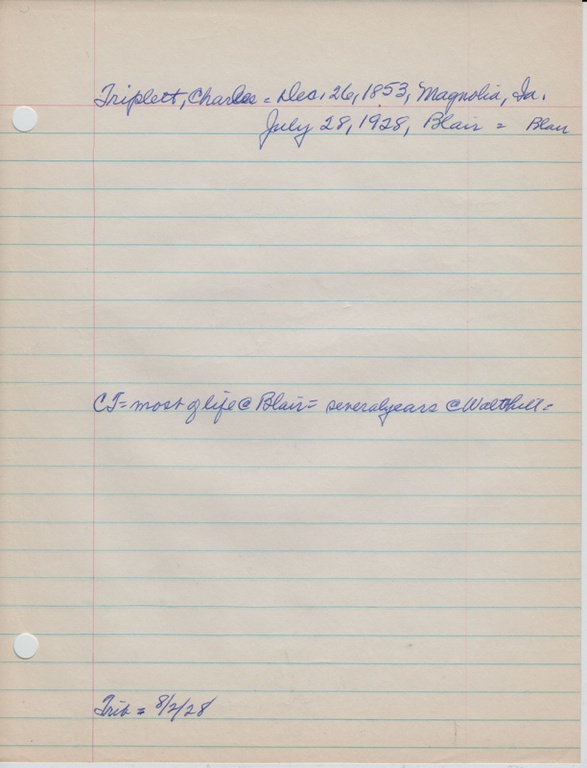 Triplett, Charles = Dec. 26, 1853, Magnolia, Ia.
July 28, 1928, Blair = Blair
CT = most of life @ Blair = several years @ Walthill =
Trib = 8/2/28